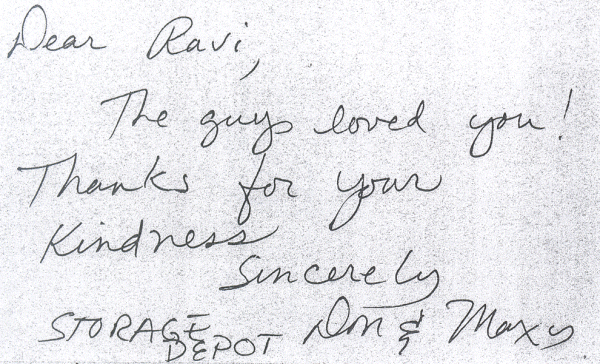 Dear Ravi,
The guys loved you!
Thanks for your
Kindness
Sincerely
STORAGE DEPOT Don & Maxy